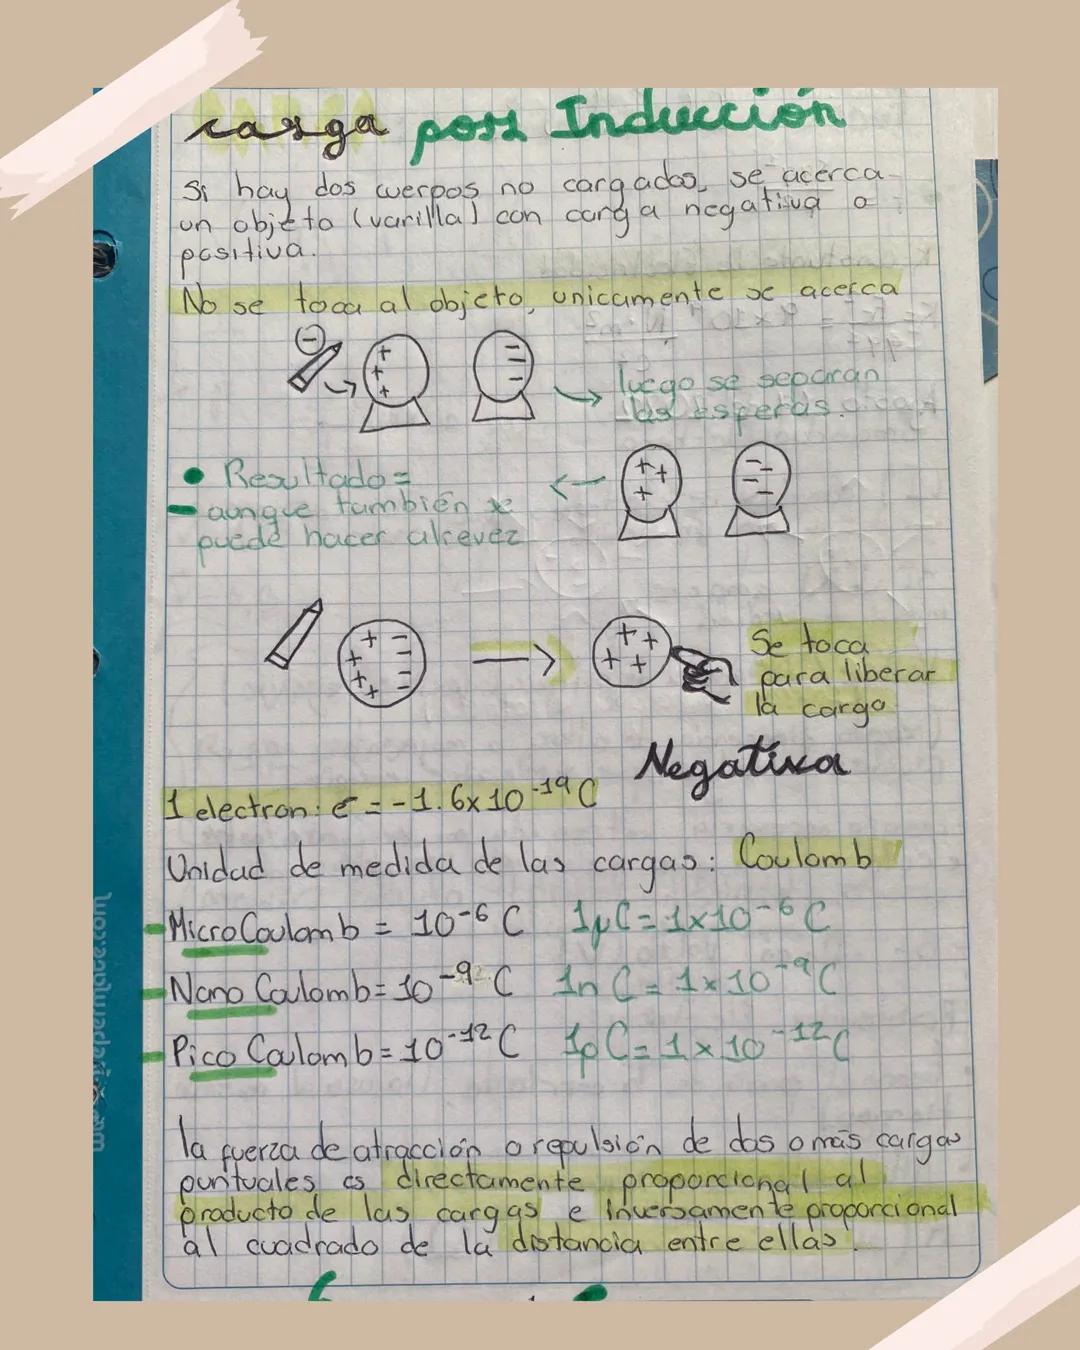 carga por Inducción
Si hay dos cuerpos no cargados, se acerca
un objeto (varilla) con carga negativa o
positiva.
No se toca al objeto, unicamente se acerca
luego se separan
las esferas.
• Resultado=
- aunque también se
puede hacer alrevez
Se toca
para liberar
la carga
Negativa
1 electron: e⁻ = -1.6x10⁻¹⁹ C
Unidad de medida de las cargas: Coulomb
- MicroCoulomb = 10⁻⁶ C 1μC = 1x10⁻⁶ C
- Nano Coulomb = 10⁻⁹ C 1n C = 1x10⁻⁹ C
- Pico Coulomb = 10⁻¹² C 1p C = 1x10⁻¹² C
la fuerza de atracción o repulsión de dos o más cargas
puntuales es directamente proporcional al
producto de las cargas e inversamente proporcional
al cuadrado de la distancia entre ellas.